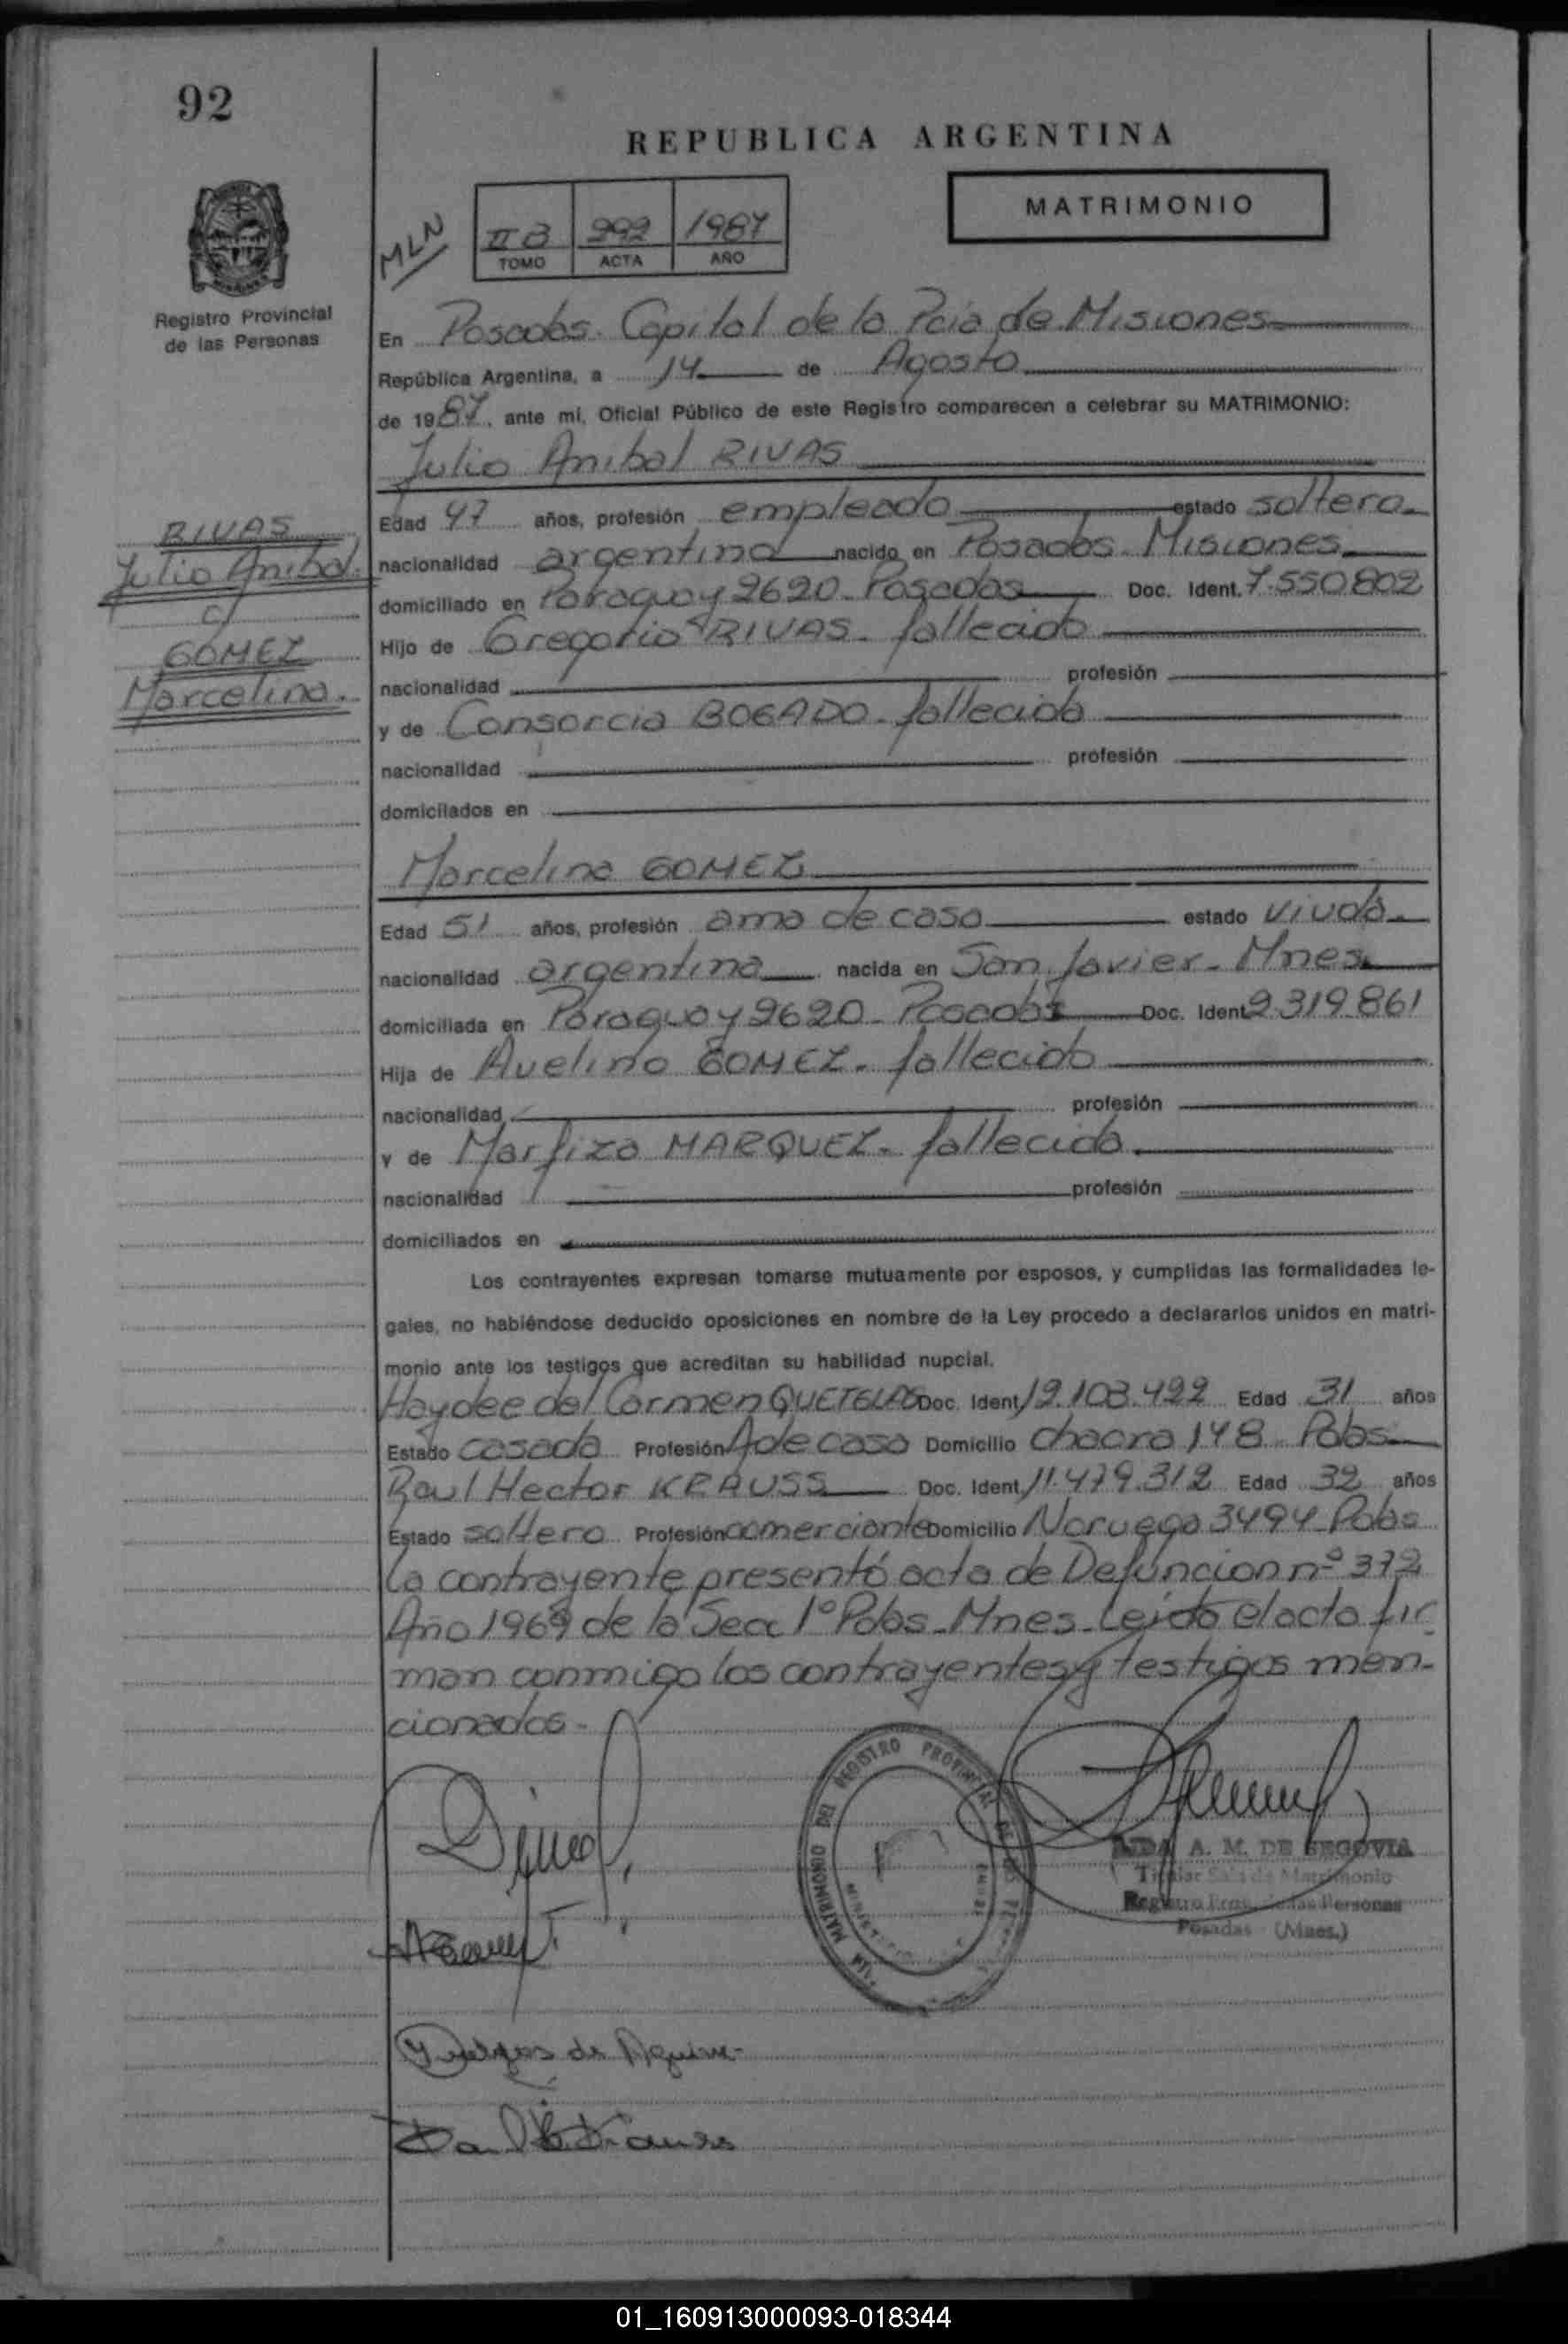 92
REPUBLICA ARGENTINA
MLN
II B 292 1987
TOMO ACTA AÑO
MATRIMONIO
Registro Provincial
de las Personas
En Posadas. Capital de la Pcia de Misiones
República Argentina, a 14 de Agosto
de 1987, ante mi, Oficial Público de este Registro comparecen a celebrar su MATRIMONIO:
Julio Anibal RIVAS
RIVAS
Julio Anibal.
c/
GOMEZ
Marcelina.
Edad 47 años, profesión empleado estado soltero.
nacionalidad argentina nacido en Posadas. Misiones
domiciliado en Paraguay 2620. Posadas Doc. Ident. 7.550.802
Hijo de Gregorio RIVAS. fallecido
nacionalidad profesión
y de Consorcia BOGADO. fallecida
nacionalidad profesión
domicilados en
Marcelina GOMEZ
Edad 51 años, profesión ama de casa estado viuda.
nacionalidad argentina nacida en San Javier. Mnes.
domiciliada en Paraguay 2620. Posadas Doc. Ident. 2.319.861
Hija de Avelino GOMEZ. fallecido
nacionalidad profesión
y de Marfiza MARQUEZ. fallecida.
nacionalidad profesión
domiciliados en
Los contrayentes expresan tomarse mutuamente por esposos, y cumplidas las formalidades le-
gales, no habiéndose deducido oposiciones en nombre de la Ley procedo a declararlos unidos en matri-
monio ante los testigos que acreditan su habilidad nupcial.
Haydee del Carmen QUETGLAS Doc. Ident. 12.103.422 Edad 31 años
Estado casada Profesión A de casa Domicilio chacra 148 Pdas
Raul Hector KRAUSS Doc. Ident. 11.479.312 Edad 32 años
Estado soltero Profesión comerciante Domicilio Noruega 3494 Pdas
La contrayente presentó acta de Defuncion nº 372
Año 1969 de la Secc 1º Pdas. Mnes. Leida el acta fir
man conmigo los contrayentes y testigos men-
cionados.
REGISTRO PROVINCIAL
MATRIMONIO DEL
AIDA A. M. DE SEGOVIA
Titular Sala de Matrimonio
Registro Prov. de las Personas
Posadas (Mnes.)
01_160913000093-018344